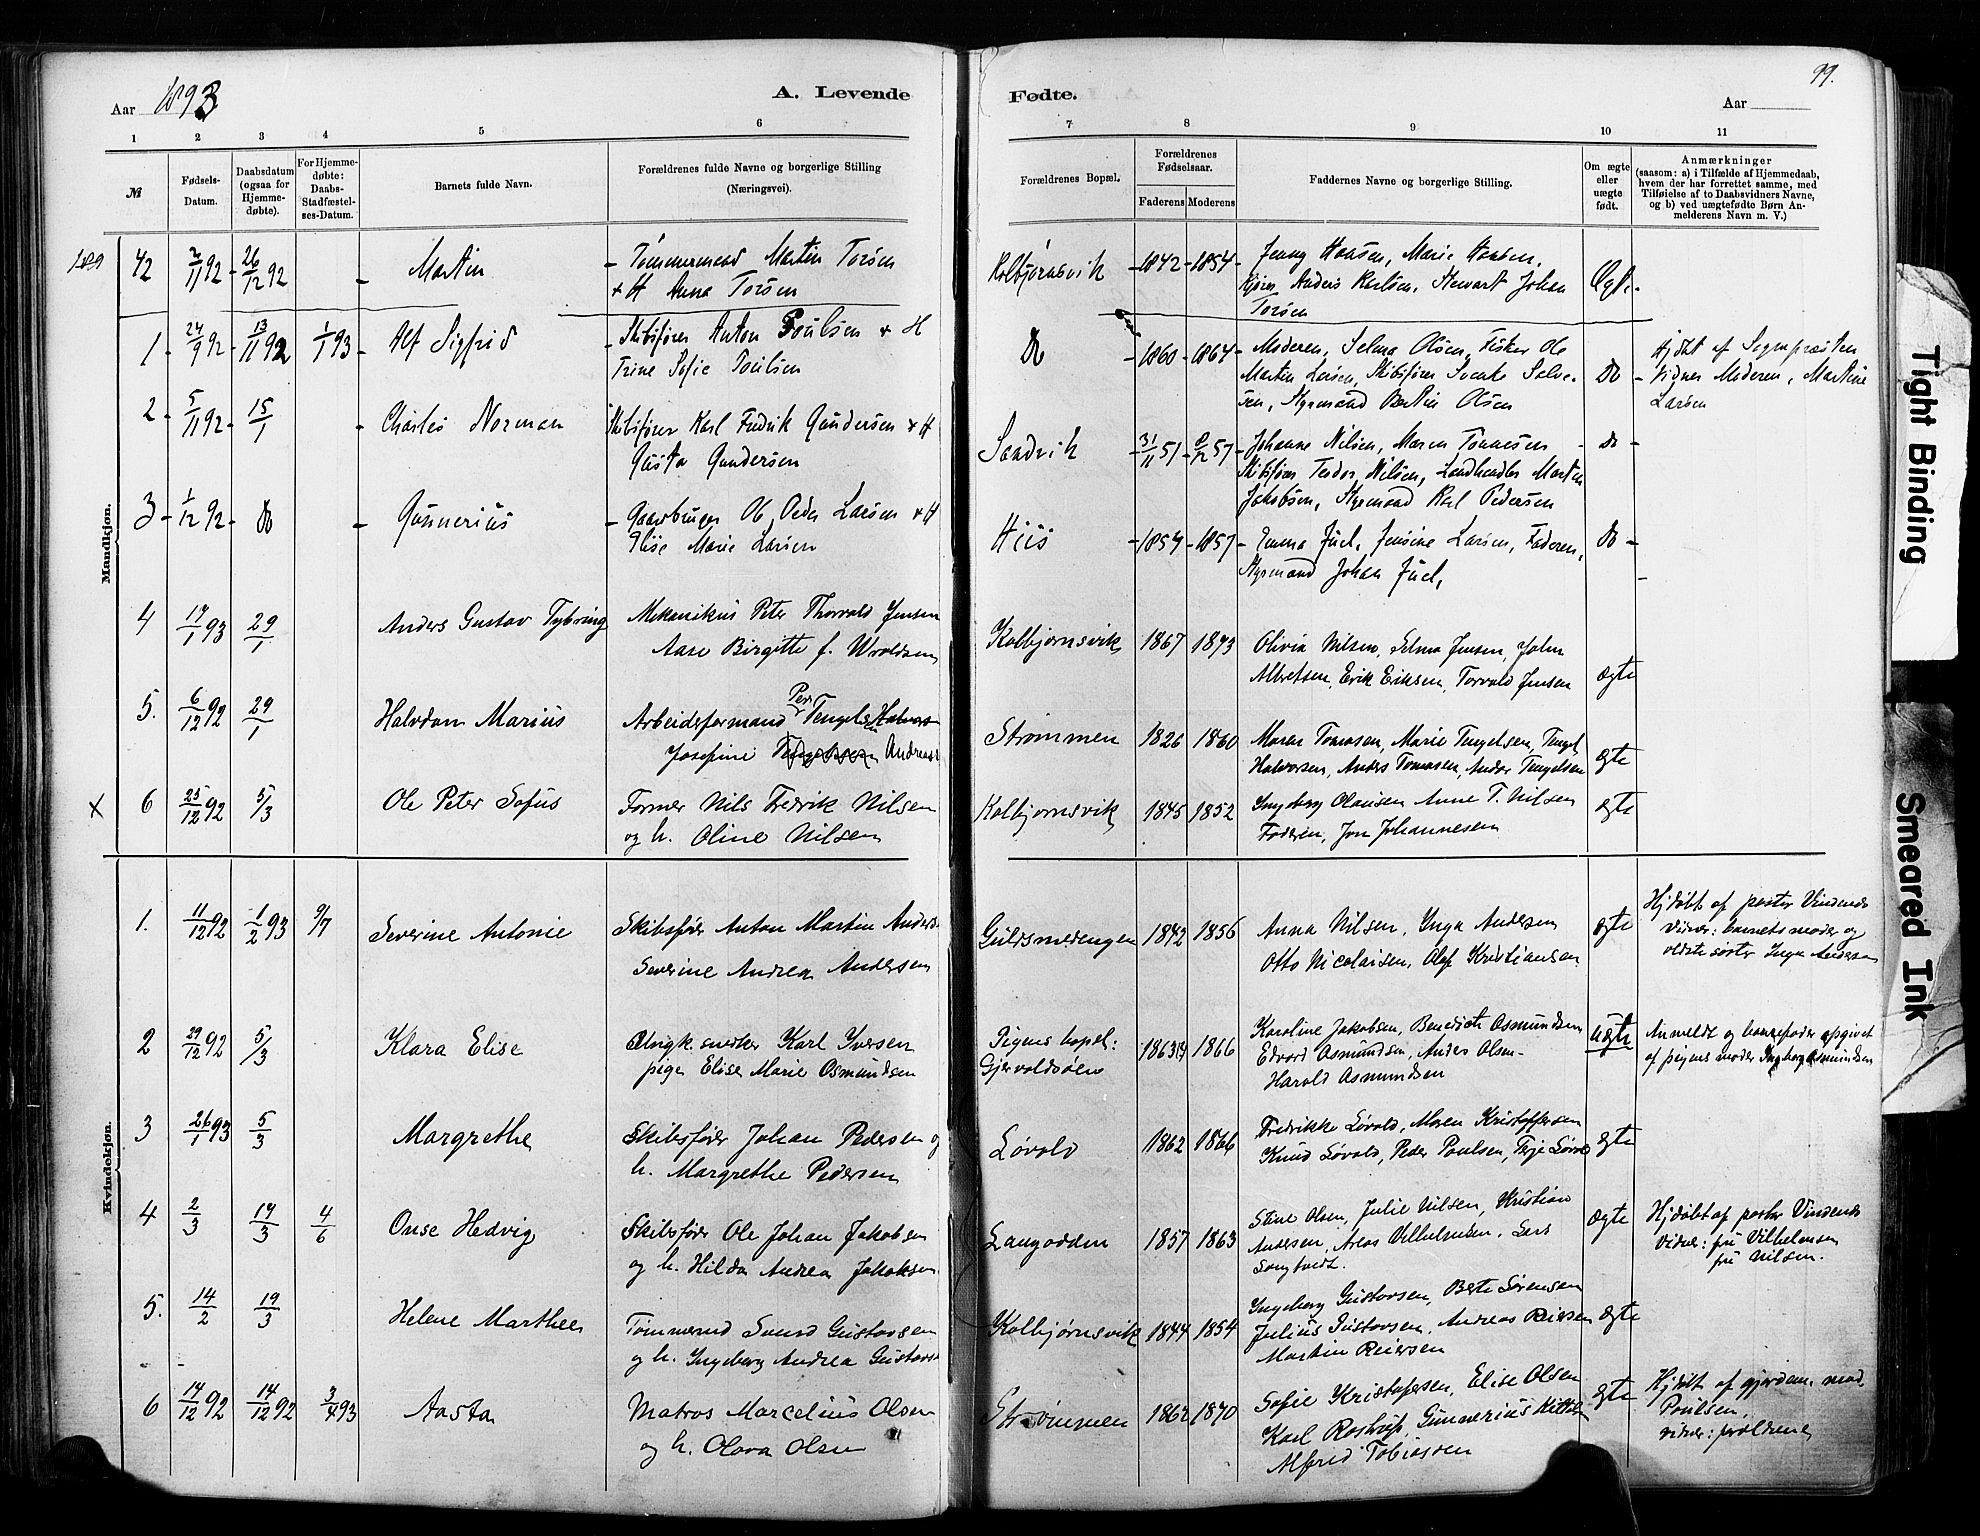 Aar 1893
A. Levende
Fødte.
99.
Aar
1 2 3 4 5 6 7 8 9 10 11
№
Fødsels-
Datum.
Daabsdatum
(ogsaa for
Hjemme-
døbte).
For Hjemme-
døbte:
Daabs-
Stadfæstel-
ses-Datum.
Barnets fulde Navn.
Forældrenes fulde Navne og borgerlige Stilling
(Næringsvei).
Forældrenes Bopæl.
Forældrenes
Fødselsaar.
Faderens Moderens
Faddernes Navne og borgerlige Stilling.
Om ægte
eller
uægte
født.
Anmærkninger
(saasom: a) i Tilfælde af Hjemmedaab,
hvem der har forrettet samme, med
Tilføielse af to Daabsvidners Navne,
og b) ved uægtefødte Børn An-
melderens Navn m. V.)
Mandkjøn.
42 2/11 92 - 26/12 92 - Martin - Tømmermand Martin Torsen
+ H Anna Torsen
Kolbjørnsvik - 1842 - 1854 - Jenny Hansen, Marie Hansen,
Anders Karlsen, Stewart Johan
Torsen
Ægte.
1 - 24/9 92 - 13/11 92 1/1 93 - Alf Sigfrid - Skibsfører Anton Poulsen + H
Trine Sofie Poulsen
Do - 1860 - 1864 - Moderen, Selma Olsen, Fisker Ole
Martin Larsen, Skibsfører Svenke Salve-
sen, Styrmand Bertin Olsen
Do - Hjdbt af Sognepræsten
Vidner Moderen, Martine
Larsen
2 - 5/11 92 - 15/1 - Charles Norman Skibsfører Karl Fredrik Gundersen + H
Gusta Gundersen
Sandvik - 31/11 51 - 57 - Johanne Nilsen, Maren Tønnesen
Skibsfører Teodor Nilsen, Landhandler Morten
Jakobsen, Styrmand Karl Pedersen
Do -
3 - 1/12 92 - Do - Gunnerius - Gaardbruger Ole Peder Larsen + H
Elise Marie Larsen
Hiis - 1854 - 1857 - Emma Juel, Jensine Larsen, Faderen,
Styrmand Johan Juel,
Do -
4 17/1 93 29/1 Anders Gustav Tybring Mekanikus Peter Thorvald Jensen
Aase Birgitte f. Wroldsen
Kolbjørnsvik 1867 1873 Olivia Nilsen, Selma Jensen, John
Albretsen, Erik Eriksen, Torvald Jensen
ægte
5. 6/12 92 29/1 Halvdan Marius Arbeidsformand Peder Tengels Halvors
Josefine Andreas
Strømmen 1826 1860 Maren Tomasen, Marie Tengelsen, Tengel
Halvorsen, Anders Tomasen, Andor Tengelsen
ægte
X 6 25/12 92 5/3 Ole Peter Sofus Former Nils Fredrik Nilsen
og h. Oline Nilsen
Kolbjørnsvik 1845 1852 Ingeborg Olausen Anne T. Nilsen
Faderen, Jon Johannesen
ægte
Kvindekjøn.
1. 11/12 92 1/2 93 9/7 Severine Antonie Skibsfører Anton Martin Anders
Severine Andrea Andersen
Guldsmedengen 1842 1856 Anna Nilsen, Inga Andersen
Otto Nicolaisen, Olaf Kristiansen.
ægte Hjdøbt af pastor Vindenes
Vidner: barnets moder og
ældste søster Inga Andersen
2 29/12 92 5/3 Klara Elise snedker Karl Iversen
pige Elise Marie Osmundsen
Pigens bopæl:
Gjervoldsøen 1863 1866 Karoline Jakobsen, Benedicte Osmundsen
Edvard Osmundsen, Anders Olsen-
Harald Osmundsen
uægte Anmeldt og barnefader opgivet
af pigens moder Ingeborg Osmundsen
3 26/1 93 5/3 Margrethe Skibsfører Johan Pedersen og
h. Margrethe Pedersen
Løvold 1862 1866 Fredrikke Løvold, Maren Kristoffersen
Knud Løvold, Peder Poulsen, Terje Løvold
ægte
4 2/3 19/3 4/6 Onse Hedvig Skibsfører Ole Johan Jakobsen
og h. Hilda Andrea Jakobsen
Langodden 1857 1863 Stine Olsen, Julie Nilsen, Kristian
Andersen, Vilhelmsen, Lars
Longtveit.
ægte Hjdøbt af pastor Vindenes
Vidner: fru Vilhelmsen
fru Nilsen.
5. 14/2 19/3 Helene Marthea Tømmermd Svend Gustavsen
og h. Ingeborg Andrea Gustavs
Kolbjørnsvik 1844 1854 Ingeborg Gustavsen, Berte Sørensen
Julius Gustavsen, Andreas Reiersen
Martin Reiersen
ægte
6 14/12 92 14/12 92 3/4 93 Aasta Matros Marcelius Olsen
og h. Olava Olsen
Strømmen 1862 1870 Sofie Kristofersen, Elise Olsen
Karl Rostrup, Gunnerius
Alfred Tobiassen
ægte Hjdøbt af gjordem. mad.
Poulsen,
vidner: forældrene
Tight Binding
Smeared Ink